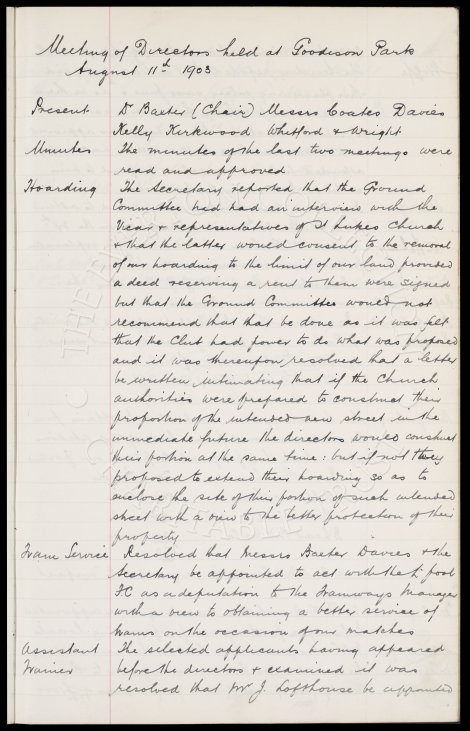 Meeting of Directors held at Goodison Park
August 11th 1903
Present Dr Baxter (Chair) Messrs Coates Davies
Kelly Kirkwood Whitford & Wright
Minutes The minutes of the last two meetings were
read and approved
Hoarding The Secretary reported that the Ground
Committee had had an interview with the
Vicar & representatives of St Lukes Church
& that the latter would consent to the removal
of our hoarding to the limit of our land provided
a deed reserving a rent to them were signed
but that the Ground Committee would not
recommend that that be done as it was felt
that the Club had power to do what was proposed
and it was thereupon resolved that a letter
be written intimating that if the Church
authorities were prepared to construct their
proportion of the intended new street in the
immediate future the directors would construct
their portion at the same time: but if not they
proposed to extend their hoarding so as to
enclose the site of their portion of such intended
street with a view to the better protection of their
property
Tram Service Resolved that Messrs Baxter Davies & the
Secretary be appointed to act with the L'pool
FC as a deputation to the Tramways Manager
with a view to obtaining a better service of
trams on the occasion of our matches
Assistant The selected applicants having appeared
Trainer before the directors & examined it was
resolved that Mr J. Lofthouse be appointed